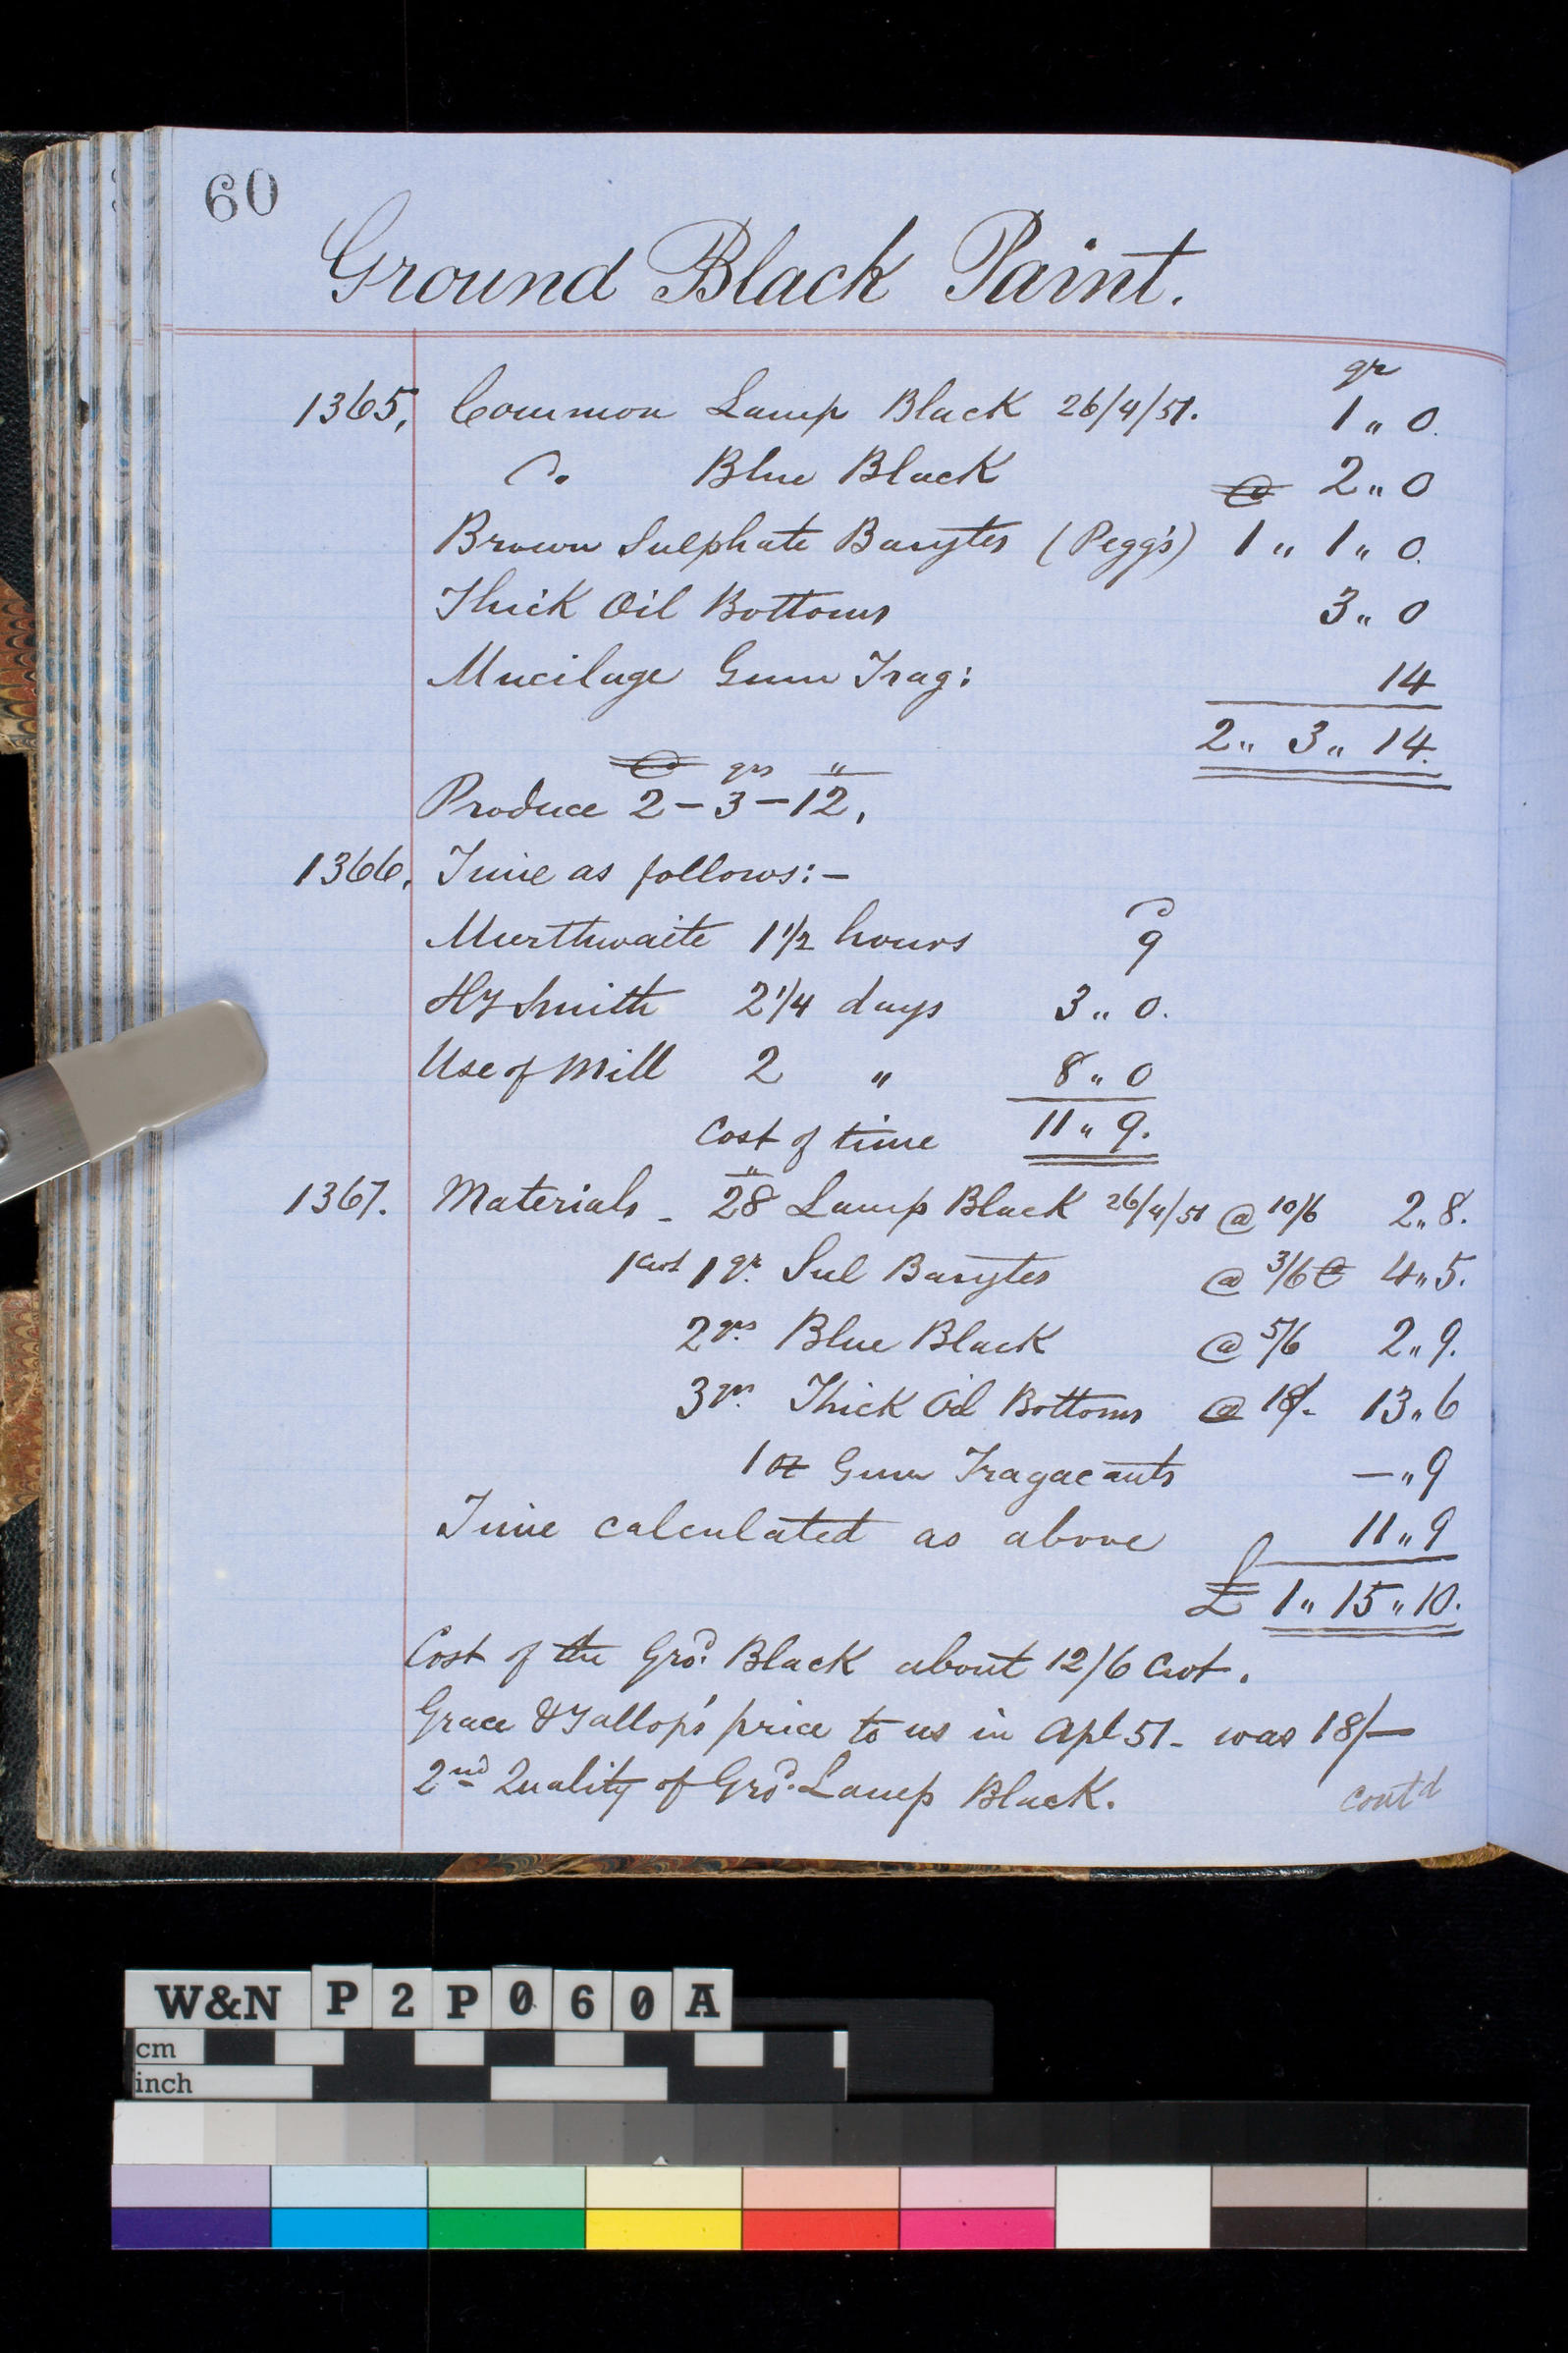 60
Ground Black Paint.
gr
1365, Common Lamp Black 26/4/51. 1 " 0.
Do Blue Black 2 " 0
Brown Sulphate Barytes (Pegg's) 1 " 1 " 0.
Thick Oil Bottoms 3 " 0
Mucilage Gum Trag: 14
2 " 3 " 14.
qrs "
Produce 2 - 3 - 12,
1366, Time as follows:-
Murthwaite 1 1/2 hours 9
Hy Smith 2 1/4 days 3 " 0.
Use of Mill 2 " 8 " 0
Cost of time 11 " 9.
1367. Materials - 28 Lamp Black 26/4/51 @ 10/6 2 " 8.
1 cwt 1 qr. Sul Barytes @ 3/6 4 " 5.
2 qrs. Blue Black @ 5/6 2 " 9.
3 qrs. Thick Oil Bottoms @ 18/- 13 " 6
1 oz Gum Tragacants — " 9
Time calculated as above 11 " 9
£ 1 " 15 " 10.
Cost of the Grd. Black about 12/6 Cwt.
Grace & Tallop's price to us in Apl 51 - was 18/-
2nd Quality of Grd. Lamp Black. contd
W&N P2P060A
cm
inch